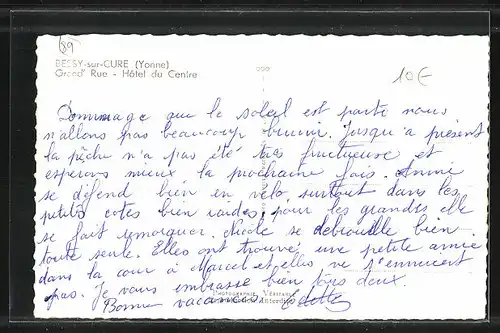 89
BESSY-sur-CURE (Yonne)
Grand' Rue - Hôtel du Centre
10€
Dommage que le soleil est parti nous
n'allons pas beaucoup brunir. Jusqu'a présent
la pêche n'a pas été très fructueuse et
espérons mieux la prochaine fois. Annie
se défend bien en vélo surtout dans les
petits cotes bien raides, pour les grandes elle
se fait remorquer. Nicole se debrouille bien
toute seule. Elles ont trouvé une petite amie
dans la cour à Marcel et elles ne s'ennuient
pas. Je vous embrasse bien fort tous deux.
Bonnes vacances. Odette
PHOTOGRAPHIE VÉRITABLE